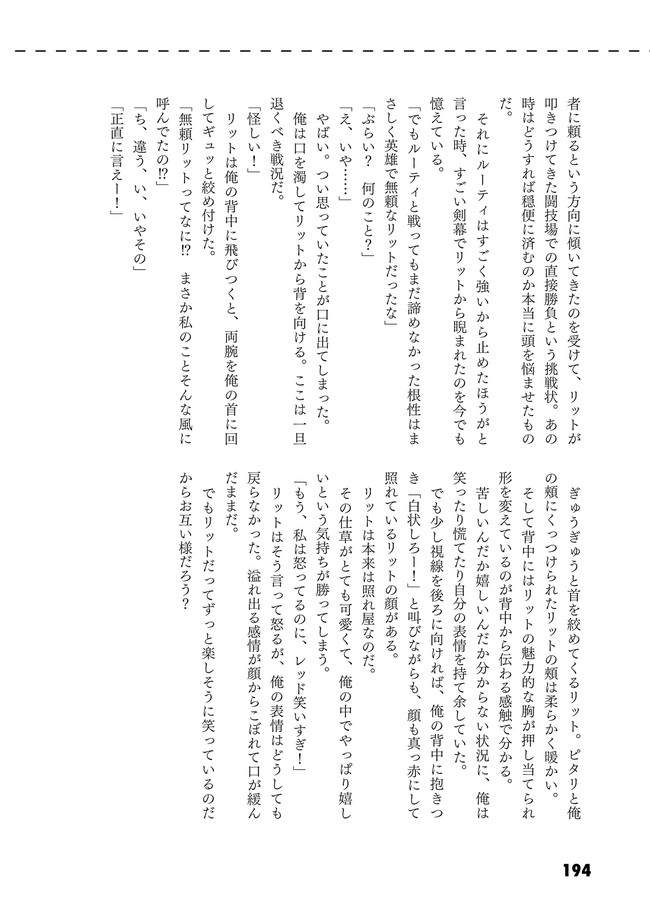 者に頼るという方向に傾いてきたのを受けて、リットが
叩きつけてきた闘技場での直接勝負という挑戦状。あの
時はどうすれば穏便に済むのか本当に頭を悩ませたもの
だ。
　それにルーティはすごく強いから止めたほうがと
言った時、すごい剣幕でリットから睨まれたのを今でも
憶えている。
「でもルーティと戦ってもまだ諦めなかった根性はま
さしく英雄で無頼なリットだったな」
「ぶらい？　何のこと？」
「え、いや……」
　やばい。つい思っていたことが口に出てしまった。
　俺は口を濁してリットから背を向ける。ここは一旦
退くべき戦況だ。
「怪しい！」
　リットは俺の背中に飛びつくと、両腕を俺の首に回
してギュッと絞め付けた。
「無頼リットってなに⁉　まさか私のことそんな風に
呼んでたの⁉」
「ち、違う、い、いやその」
「正直に言えー！」
　ぎゅうぎゅうと首を絞めてくるリット。ピタリと俺
の頬にくっつけられたリットの頬は柔らかく暖かい。
　そして背中にはリットの魅力的な胸が押し当てられ
形を変えているのが背中から伝わる感触で分かる。
　苦しいんだか嬉しいんだか分からない状況に、俺は
笑ったり慌てたり自分の表情を持て余していた。
　でも少し視線を後ろに向ければ、俺の背中に抱きつ
き「白状しろー！」と叫びながらも、顔も真っ赤にして
照れているリットの顔がある。
　リットは本来は照れ屋なのだ。
　その仕草がとても可愛くて、俺の中でやっぱり嬉し
いという気持ちが勝ってしまう。
「もう、私は怒ってるのに、レッド笑いすぎ！」
　リットはそう言って怒るが、俺の表情はどうしても
戻らなかった。溢れ出る感情が顔からこぼれて口が緩ん
だままだ。
　でもリットだってずっと楽しそうに笑っているのだ
からお互い様だろう？
194